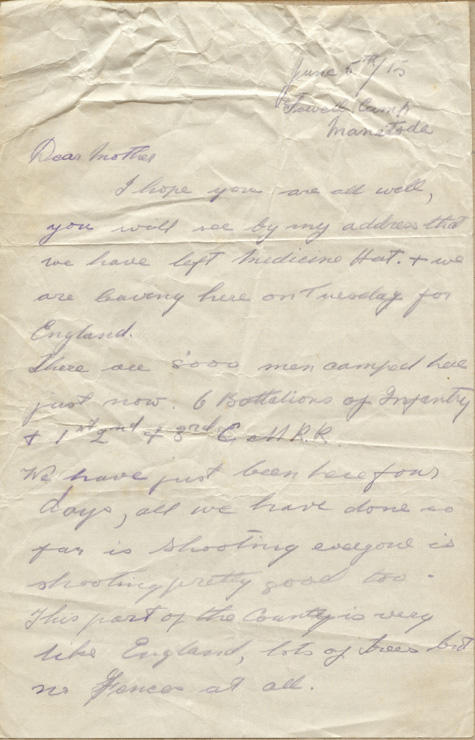 June 5th/15
Sewell Camp
Manatoda
Dear Mother
I hope you are all well,
you will see by my address that
we have left Medicine Hat. + we
are leaving here on Tuesday for
England.
There are 5000 men camped here
just now. 6 Battalions of Infantry
+ 1st 2nd + 3rd C.M.R.R.
We have just been here four
days, all we have done so
far is shooting everyone is
shooting pretty good too.
This part of the County is very
like England, lots of trees but
no Fences at all.